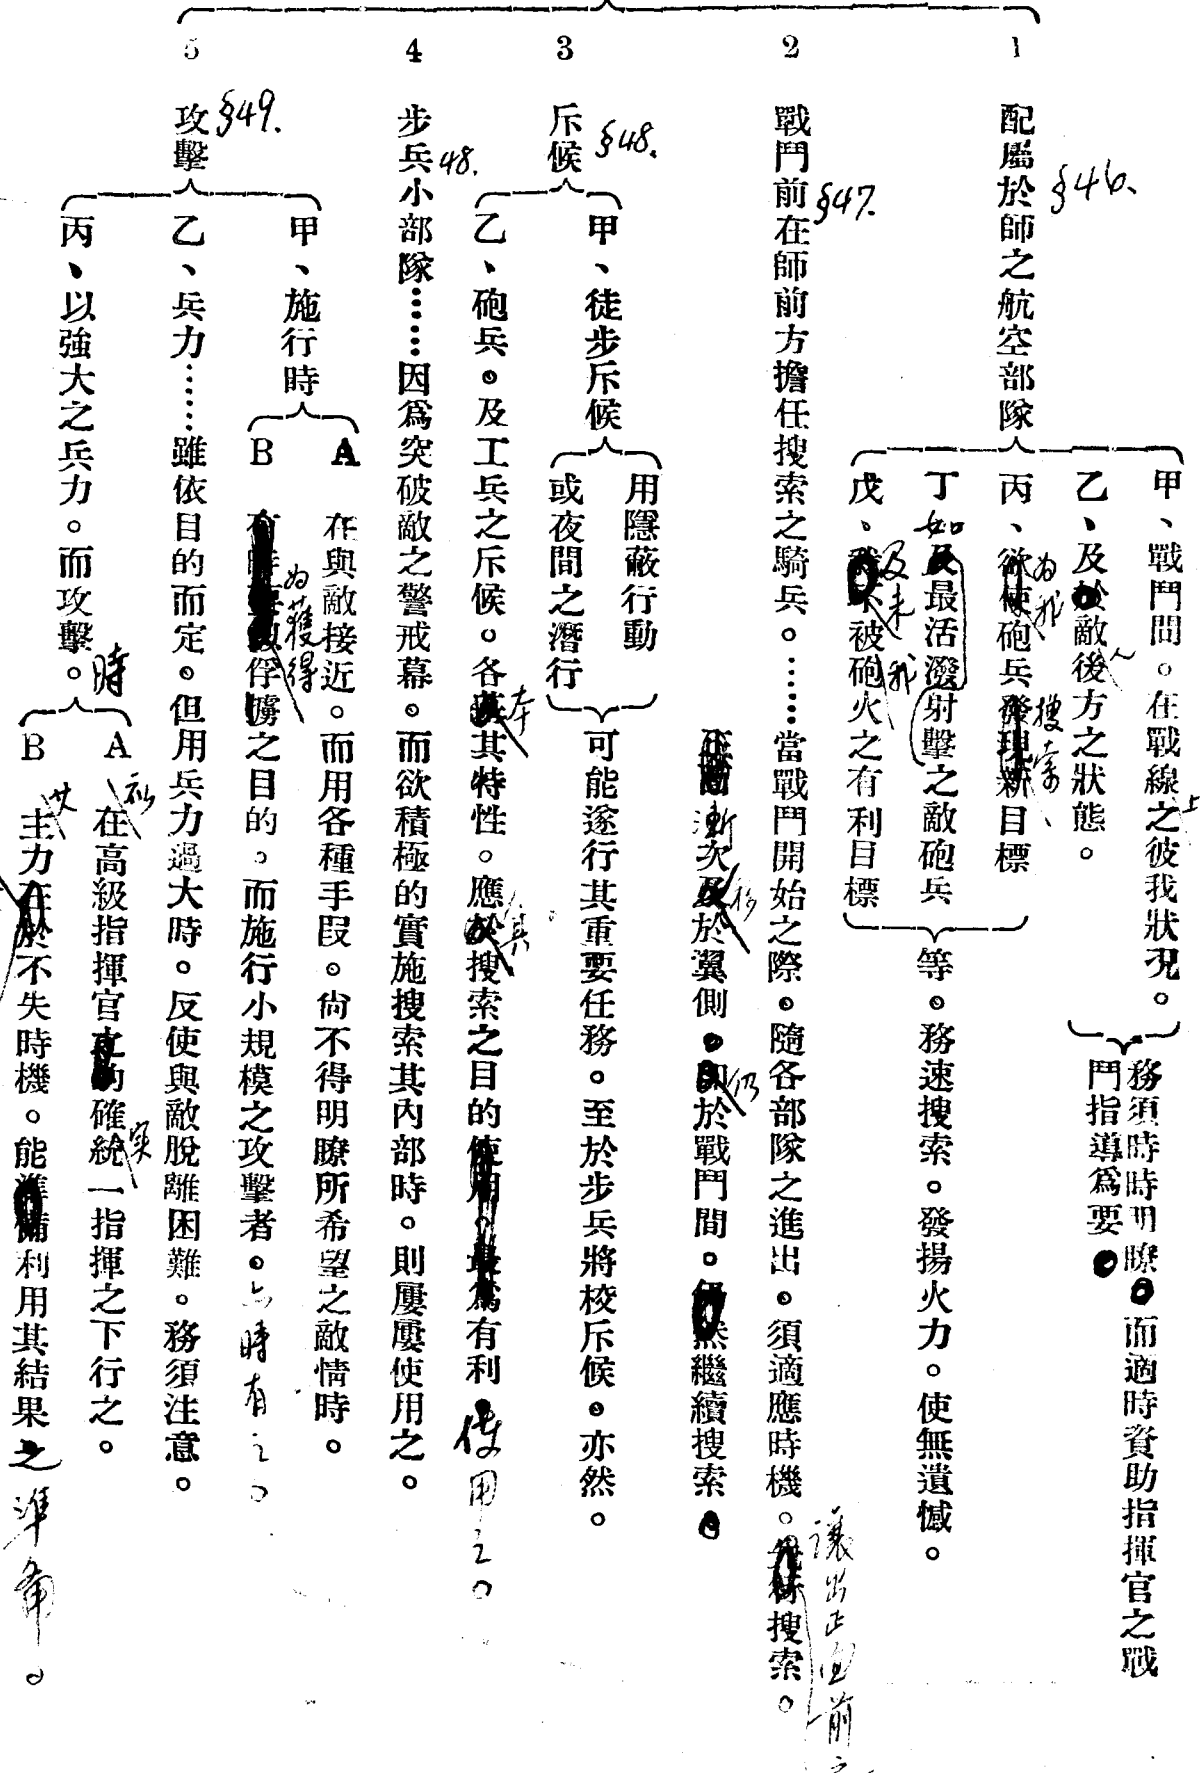 1
配屬於師之航空部隊
§46.
甲、戰鬥間。在戰線之彼我狀況。
上
乙、及敵後方之狀態。
務須時時明瞭而適時資助指揮官之戰
鬥指導爲要
丙、欲使砲兵發現新目標
为我
搜索
丁
如
最活潑射擊之敵砲兵
戊、被砲火之有利目標
及未
我
等。務速搜索。發揚火力。使無遺憾。
2
戰鬥前在師前方擔任搜索之騎兵。……當戰鬥開始之際。隨各部隊之進出。須適應時機。搜索。
§47.
讓出正面前之
漸
次及於翼側。於戰鬥間。繼續搜索。
移
仍
3
斥候
§48.
甲、徒步斥候
用隱蔽行動
或夜間之潛行
可能遂行其重要任務。至於步兵將校斥候。亦然。
乙、砲兵。及工兵之斥候。各其特性。應於搜索之目的使用。最爲有利。
本
其
使用之。
4
步兵小部隊……因爲突破敵之警戒幕。而欲積極的實施搜索其內部時。則屢屢使用之。
48.
5
攻擊
§49.
甲、施行時
A
在與敵接近。而用各種手段。尙不得明瞭所希望之敵情時。
B
俘擄之目的。而施行小規模之攻擊者。
为获得
时有之。
乙、兵力……雖依目的而定。但用兵力過大時。反使與敵脫離困難。務須注意。
丙、以強大之兵力。而攻擊。
時
A
在高級指揮官確統一指揮之下行之。
实
B
主力在於不失時機。能準備利用其結果之
準備。